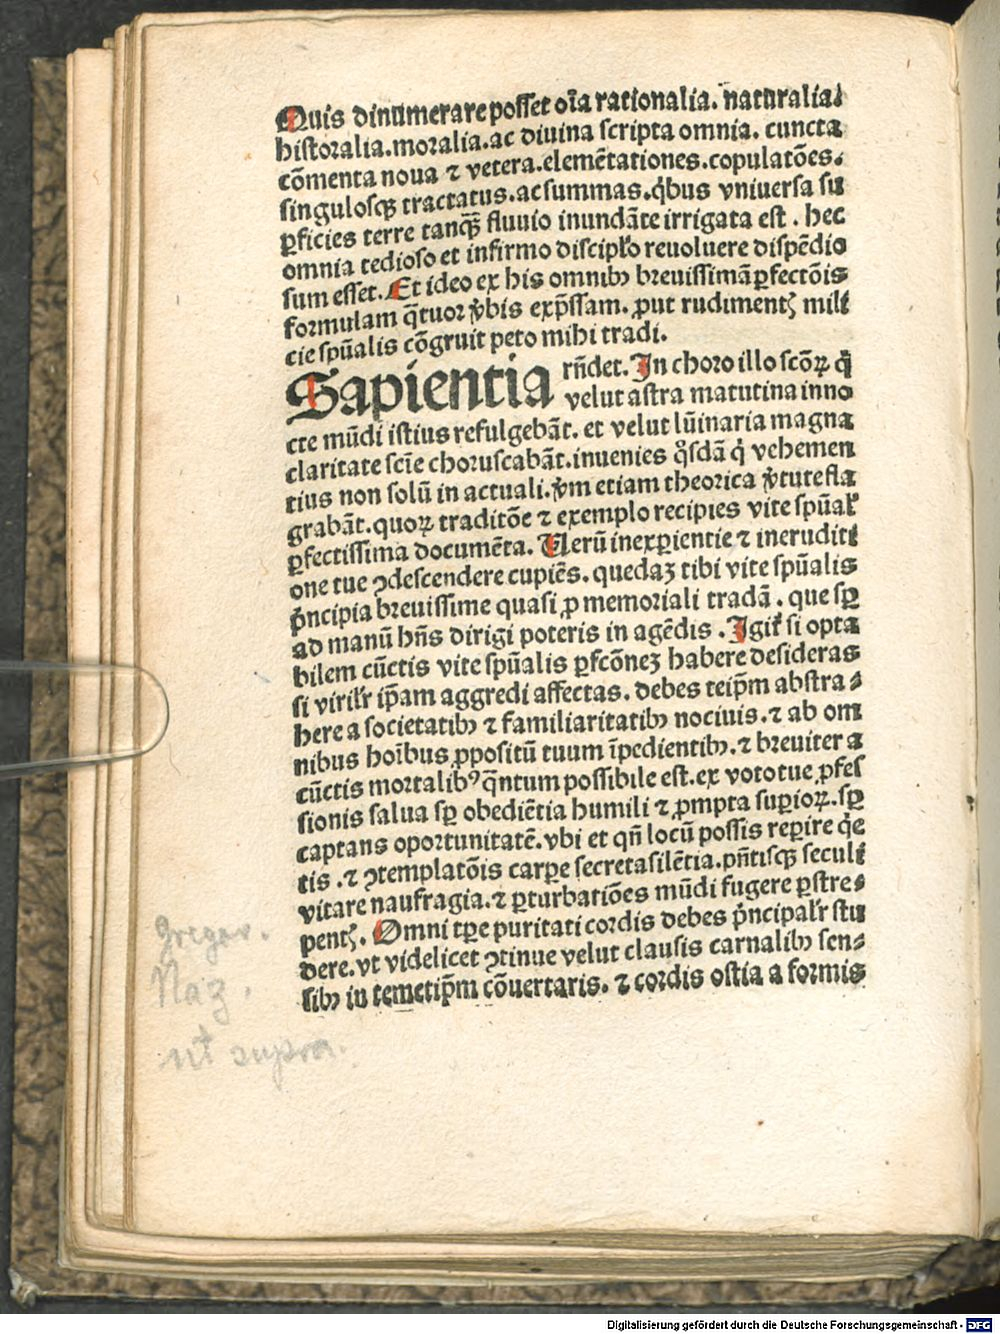 Quis dinumerare posset oīa rationalia. naturalia.
historalia. moralia. ac diuina scripta omnia. cuncta
cōmenta noua ⁊ vetera. elemētationes. copulatōes.
singulosqꝫ tractatus. ac summas. qͥbus vniuersa su
ꝑficies terre tanqꝫ̄ fluuio inundāte irrigata est. hec
omnia tedioso et infirmo discipĺo reuoluere dispēdio
sum esset. Et ideo ex his omnibꝰ breuissimā ꝑfectōis
formulam q̄tuor v̾bis exp̄ssam. ꝓut rudimentꝭ mili
cie spūalis cōgruit peto mihi tradi.
Sapientia rn̄det. In choro illo scōꝝ qͥ
velut astra matutina inno
cte mūdi istius refulgebāt. et velut lūinaria magna
claritate scīe choruscabāt. inuenies qͦsdā qͥ vehemen
tius non solū in actuali. v̾m etiam theorica v̾tute fla
grabāt. quoꝝ traditōe ⁊ exemplo recipies vite spūal̕
ꝑfectissima documēta. Uerū inexꝑientie ⁊ ineruditi
one tue ꝯdescendere cupiēs. quedaꝫ tibi vite spūalis
pͥncipia breuissime quasi ꝓ memoriali tradā. que sꝑ
ad manū hn̄s dirigi poteris in agēdis. Igit̕ si opta
bilem cūctis vite spūalis ꝑfcōneꝫ habere desideras
si viril̕r ip̄am aggredi affectas. debes teip̄m abstra⸗
here a societatibꝰ ⁊ familiaritatibꝰ nociuis. ⁊ ab om
nibus hoībus ꝓpositū tuum īpedientibꝰ. ⁊ breuiter a
cūctis mortalibꝰ q̄ntum possibile est. ex voto tue ꝓfes
sionis salua sꝑ obediētia humili ⁊ ꝓmpta suꝑioꝝ. sꝑ
captans oportunitatē. vbi et qn̄ locū possis reꝑire q̄e
tis. ⁊ ꝯtemplatōis carpe secreta silētia. pn̄tisqꝫ seculi
vitare naufragia. ⁊ ꝑturbatiōes mūdi fugere ꝑstre⸗
pentꝭ. Omni tꝑe puritati cordis debes pͥncipal̕r stu
dere. vt videlicet ꝯtinue velut clausis carnalibꝰ sen⸗
sibꝰ in temetip̄m cōuertaris. ⁊ cordis ostia a formis
gregor.
Naz.
ut supra.
Digitalisierung gefördert durch die Deutsche Forschungsgemeinschaft - DFG